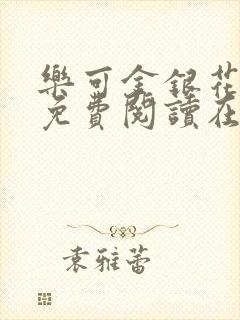 樂可金銀花
免費閱讀在
袁雅蕾